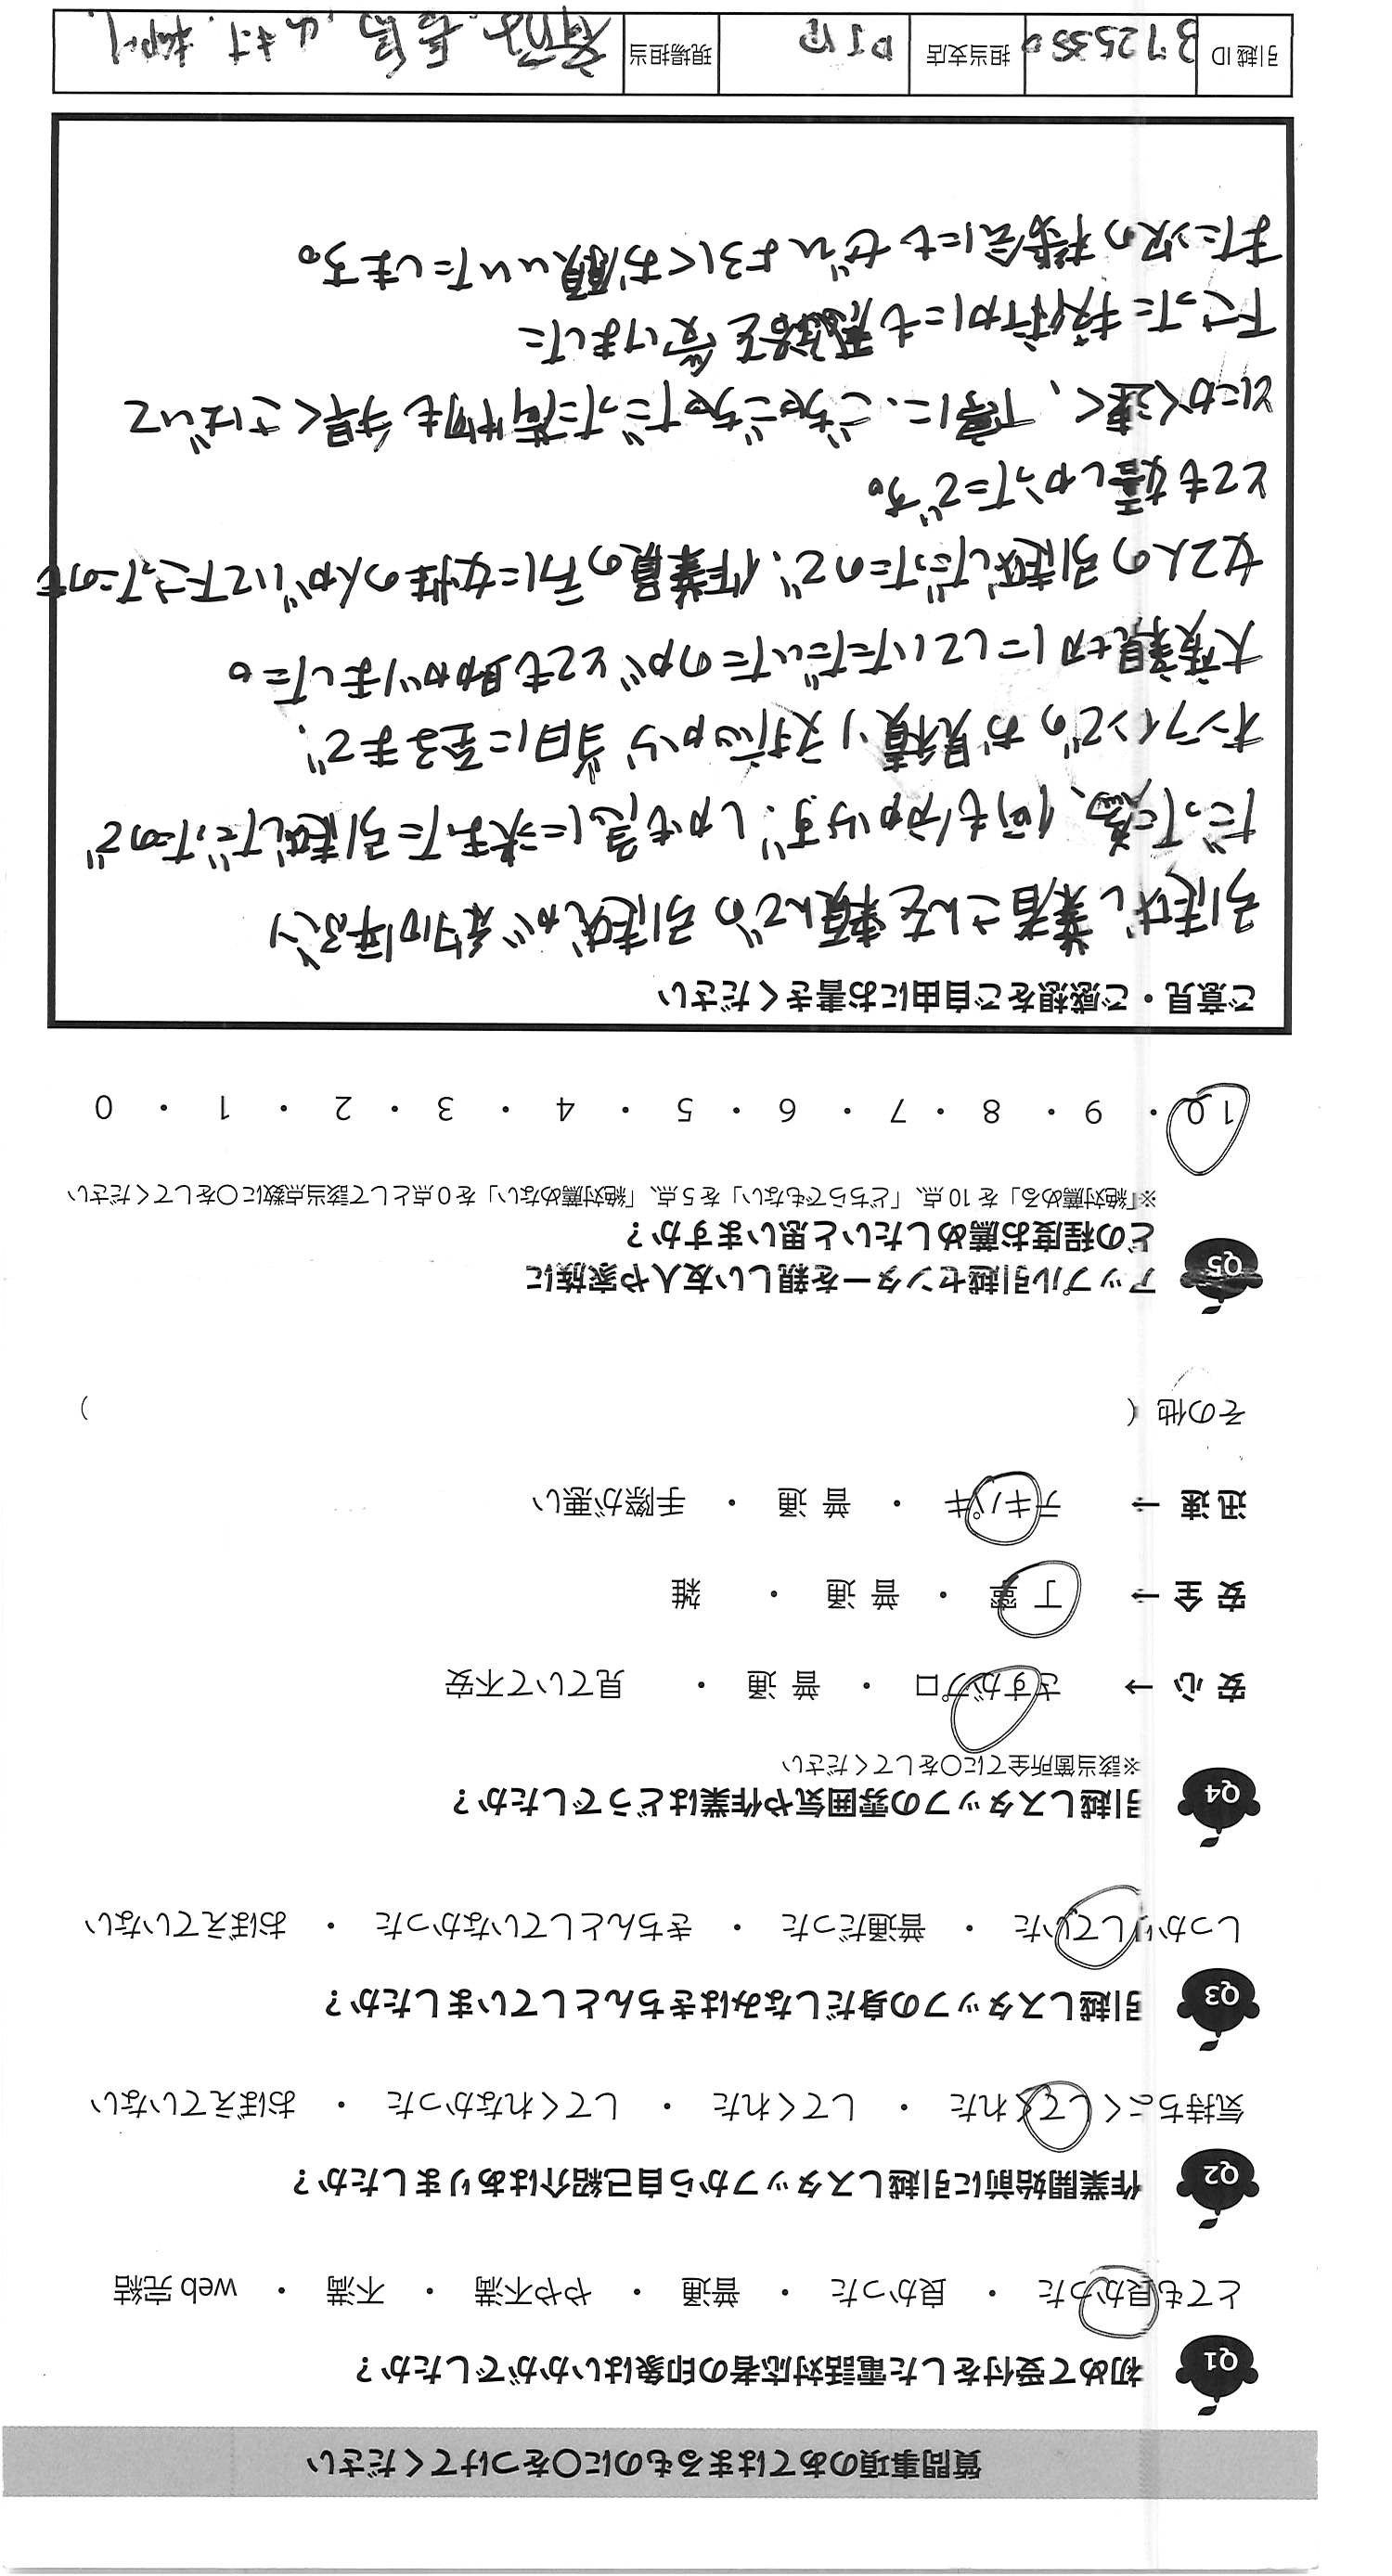 質問事項のあてはまるものに〇をつけてください
Q1 初めて受付をした電話対応者の印象はいかがでしたか?
とても良かった ・ 良かった ・ 普通 ・ やや不満 ・ 不満 ・ web 完結
Q2 作業開始前に引越しスタッフから自己紹介はありましたか?
気持ちよくしてくれた ・ してくれた ・ してくれなかった ・ おぼえていない
Q3 引越しスタッフの身だしなみはきちんとしていましたか?
しっかりしていた ・ 普通だった ・ きちんとしていなかった ・ おぼえていない
Q4 引越しスタッフの雰囲気や作業はどうでしたか?
※該当箇所全てに〇をしてください
安 心 → さすがプロ ・ 普 通 ・ 見ていて不安
安 全 → 丁 寧 ・ 普 通 ・ 雑
迅 速 → テキパキ ・ 普 通 ・ 手際が悪い
その他 ( )
Q5 アップル引越センターを親しい友人や家族に
どの程度お薦めしたいと思いますか?
※「絶対薦める」を 10 点、「どちらでもない」を 5 点、「絶対薦めない」を 0 点として該当点数に〇をしてください
10 ・ 9 ・ 8 ・ 7 ・ 6 ・ 5 ・ 4 ・ 3 ・ 2 ・ 1 ・ 0
ご意見・ご感想をご自由にお書きください
引越し業者さんを頼んでの引越しが約10年ぶり
だった為、何も分からず、しかも急に決まった引越しだったので
オンラインでのお見積り対応から当日に至るまで、
大変親切にしていただいたのがとても助かりました。
女2人の引越しだったので、作業員の方に女性の人がいて下さったのも
とても嬉しかったです。
とにかく速く、丁寧に、ごちゃごちゃだった荷物も手早くさばいて
下さった技術力にも感銘を受けました
また次の機会にもぜひよろしくお願いいたします。
引越 ID 3725350 担当支店 現場担当 長島、山村、柳川